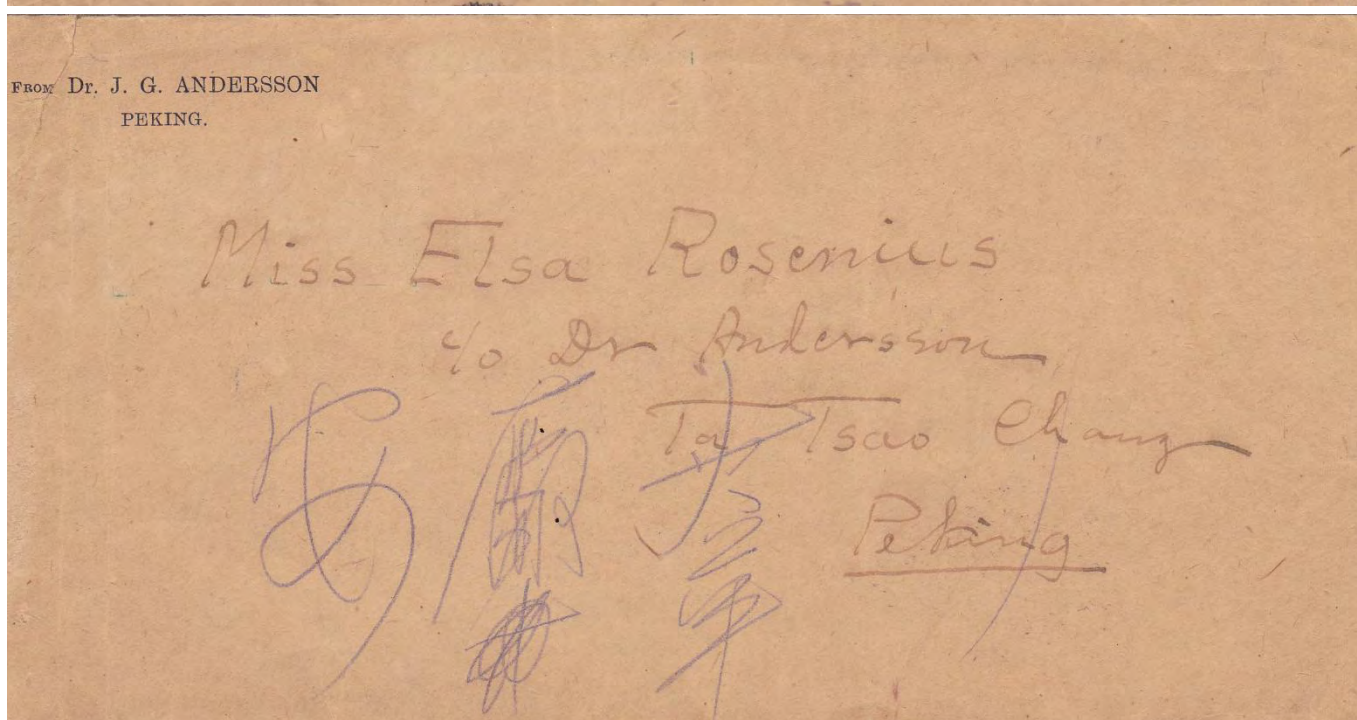 FROM Dr. J. G. ANDERSSON
PEKING.
Miss Elsa Rosenius
c/o Dr Andersson
Ta Tsao Chang
Peking
安